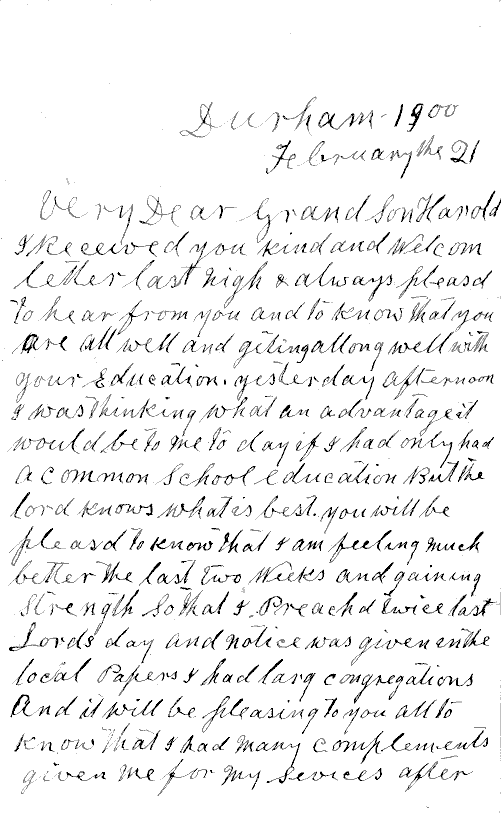 Durham - 1900
February the 21
Very Dear Grand Son Harold
I Received you kind and Welcom
letter last nigh & always pleasd
to hear from you and to know that you
are all well and giting allong well with
your Education. yesterday afternoon
I was thinking what an advantage it
would be to me to day if I had only had
a Common School education But the
lord knows what is best. you will be
pleasd to know that I am feeling much
better the last two Weeks and gaining
Strength So that I Preachd twice last
Lords day and notice was given in the
local Papers I had larg congregations
And it will be pleasing to you all to
know that I had many complements
given me for my sevices after